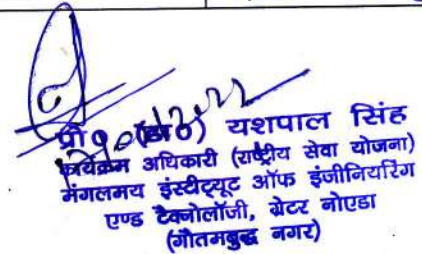 प्रो० (डा०) यशपाल सिंह
कार्यक्रम अधिकारी (राष्ट्रीय सेवा योजना)
मंगलमय इंस्टीट्यूट ऑफ इंजीनियरिंग
एण्ड टैक्नोलॉजी, ग्रेटर नोएडा
(गौतमबुद्ध नगर)